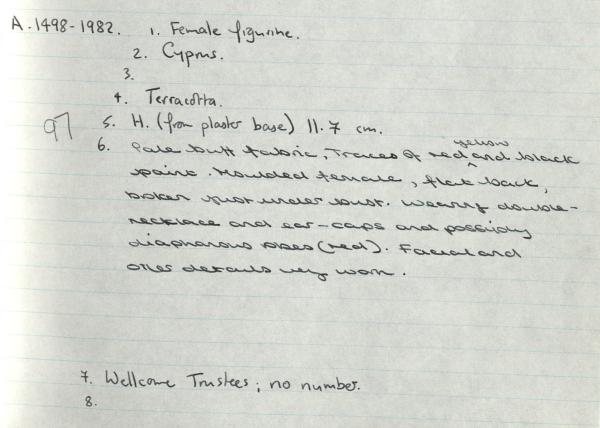 A.1498-1982. 1. Female figurine.
2. Cyprus.
3.
4. Terracotta.
97 5. H. (from plaster base) 11.7 cm.
yellow
6. Pale buff fabric, Traces of red ^ and black
paint. Moulded female, flat back,
broken just under bust. Wearing double-
necklace and ear-caps and possibly
diaphanous robes (red). Facial and
other details very worn.
7. Wellcome Trustees; no number.
8.